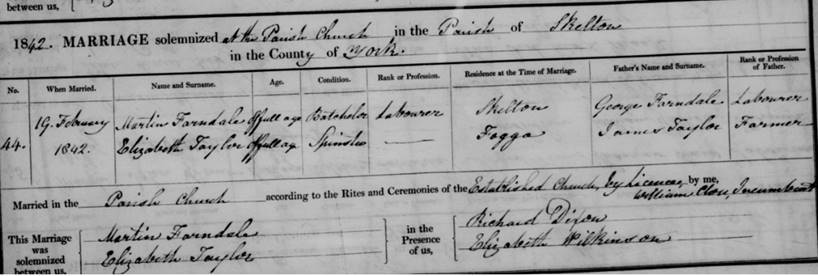 between us,
1842. MARRIAGE solemnized at the Parish Church in the Parish of Skelton
in the County of York.
No. When Married. Name and Surname. Age. Condition. Rank or Profession. Residence at the Time of Marriage. Father's Name and Surname. Rank or Profession of Father.
44. 19. February 1842. Martin Farndale Of full age Batchelor Labourer Skelton George Farndale Labourer
Elizabeth Taylor Of full age Spinster — Fogga James Taylor Farmer
Married in the Parish Church according to the Rites and Ceremonies of the Established Church, by Licence, by me,
William Close, Incumbent
This Marriage was solemnized between us, Martin Farndale Elizabeth Taylor in the Presence of us, Richard Dixon Elizabeth Wilkinson